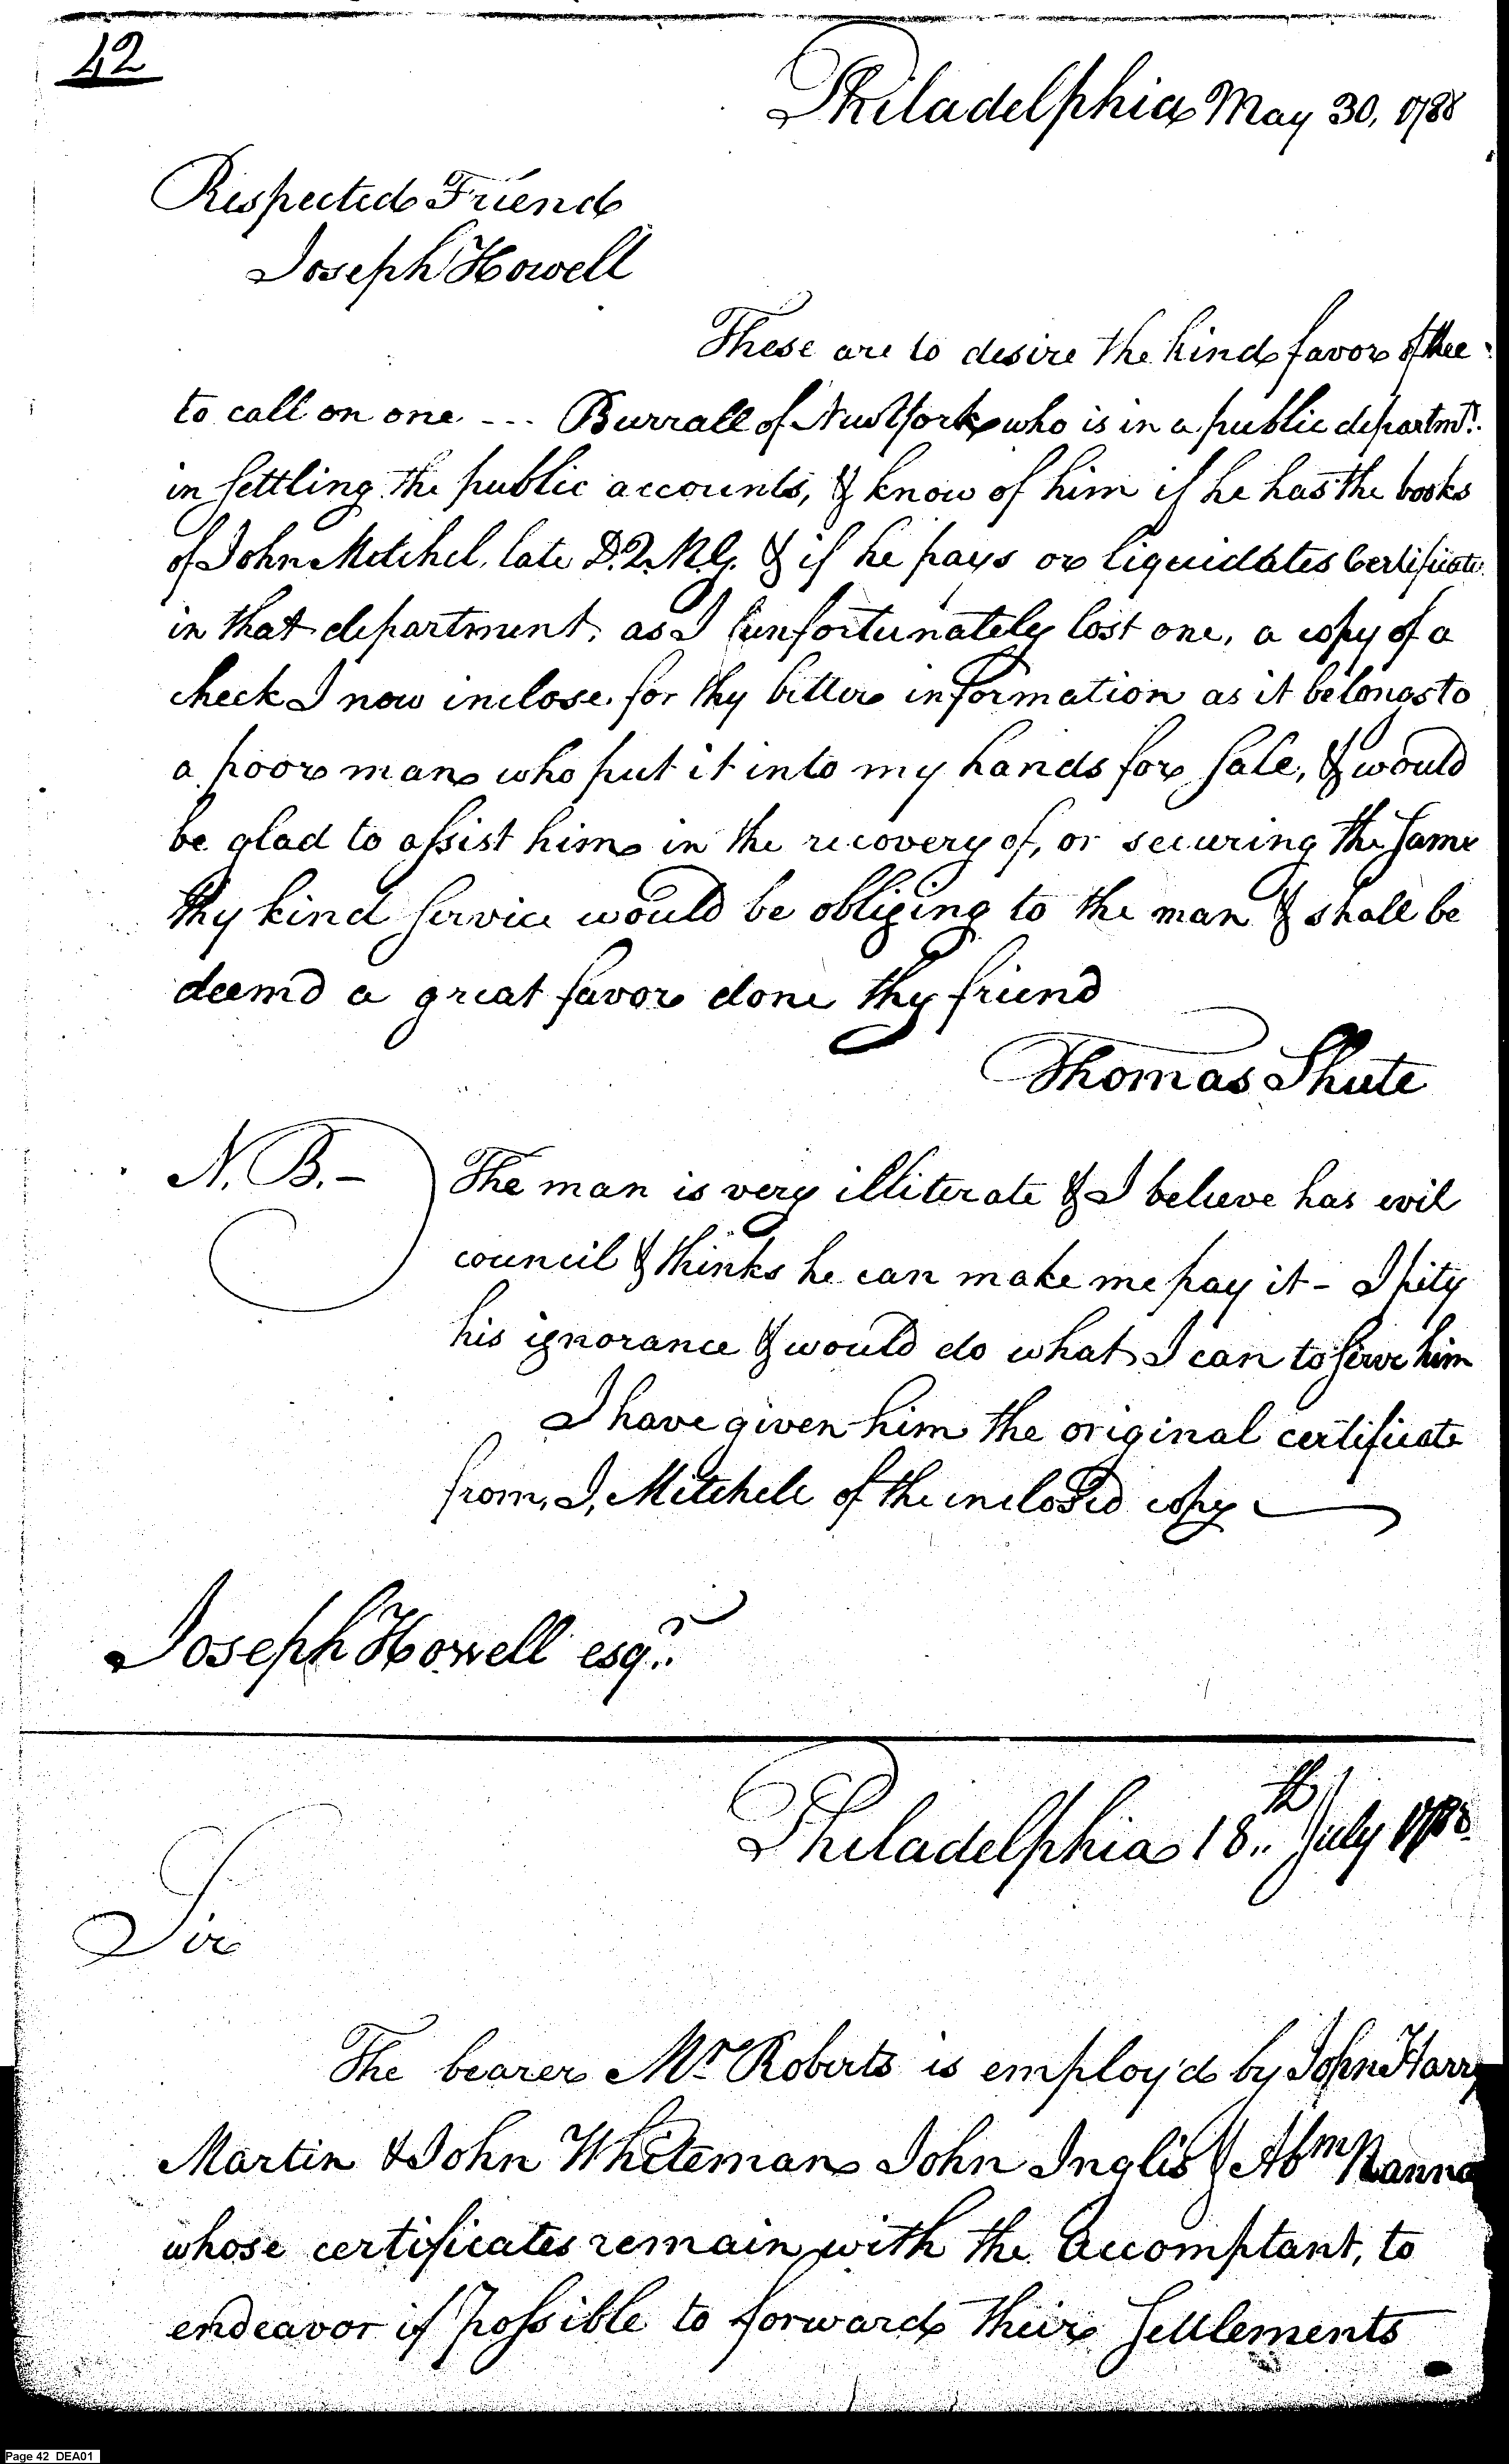 42
Philadelphia May 30, 1788
Respected Friend
Joseph Howell
These are to desire the kind favor of thee
to call on one --- Burrall of New York who is in a public departmt.
in settling the public accounts, & know of him if he has the books
of John Mitchel, late D.Q.M.G. & if he pays or liquidates Certificate
in that department, as I unfortunately lost one, a copy of a
check I now inclose for thy better information as it belongs to
a poor man who put it into my hands for sale, & would
be glad to assist him in the recovery of, or securing the same
thy kind service would be obliging to the man & shall be
deemd a great favor done thy friend
Thomas Shute
N. B. - The man is very illiterate & I believe has evil
council & thinks he can make me pay it - I pity
his ignorance & would do what I can to serve him
I have given him the original certificate
from, J, Mitchell of the inclosed copy
Joseph Howell esqr.
Philadelphia 18th July 1788
Sir
The bearer Mr Roberts is employ'd by John Harry
Martin & John Whiteman John Inglis & Abm
whose certificates remain with the Accomptant, to
endeavor if possible to forward their settlements
Page 42 DEA01